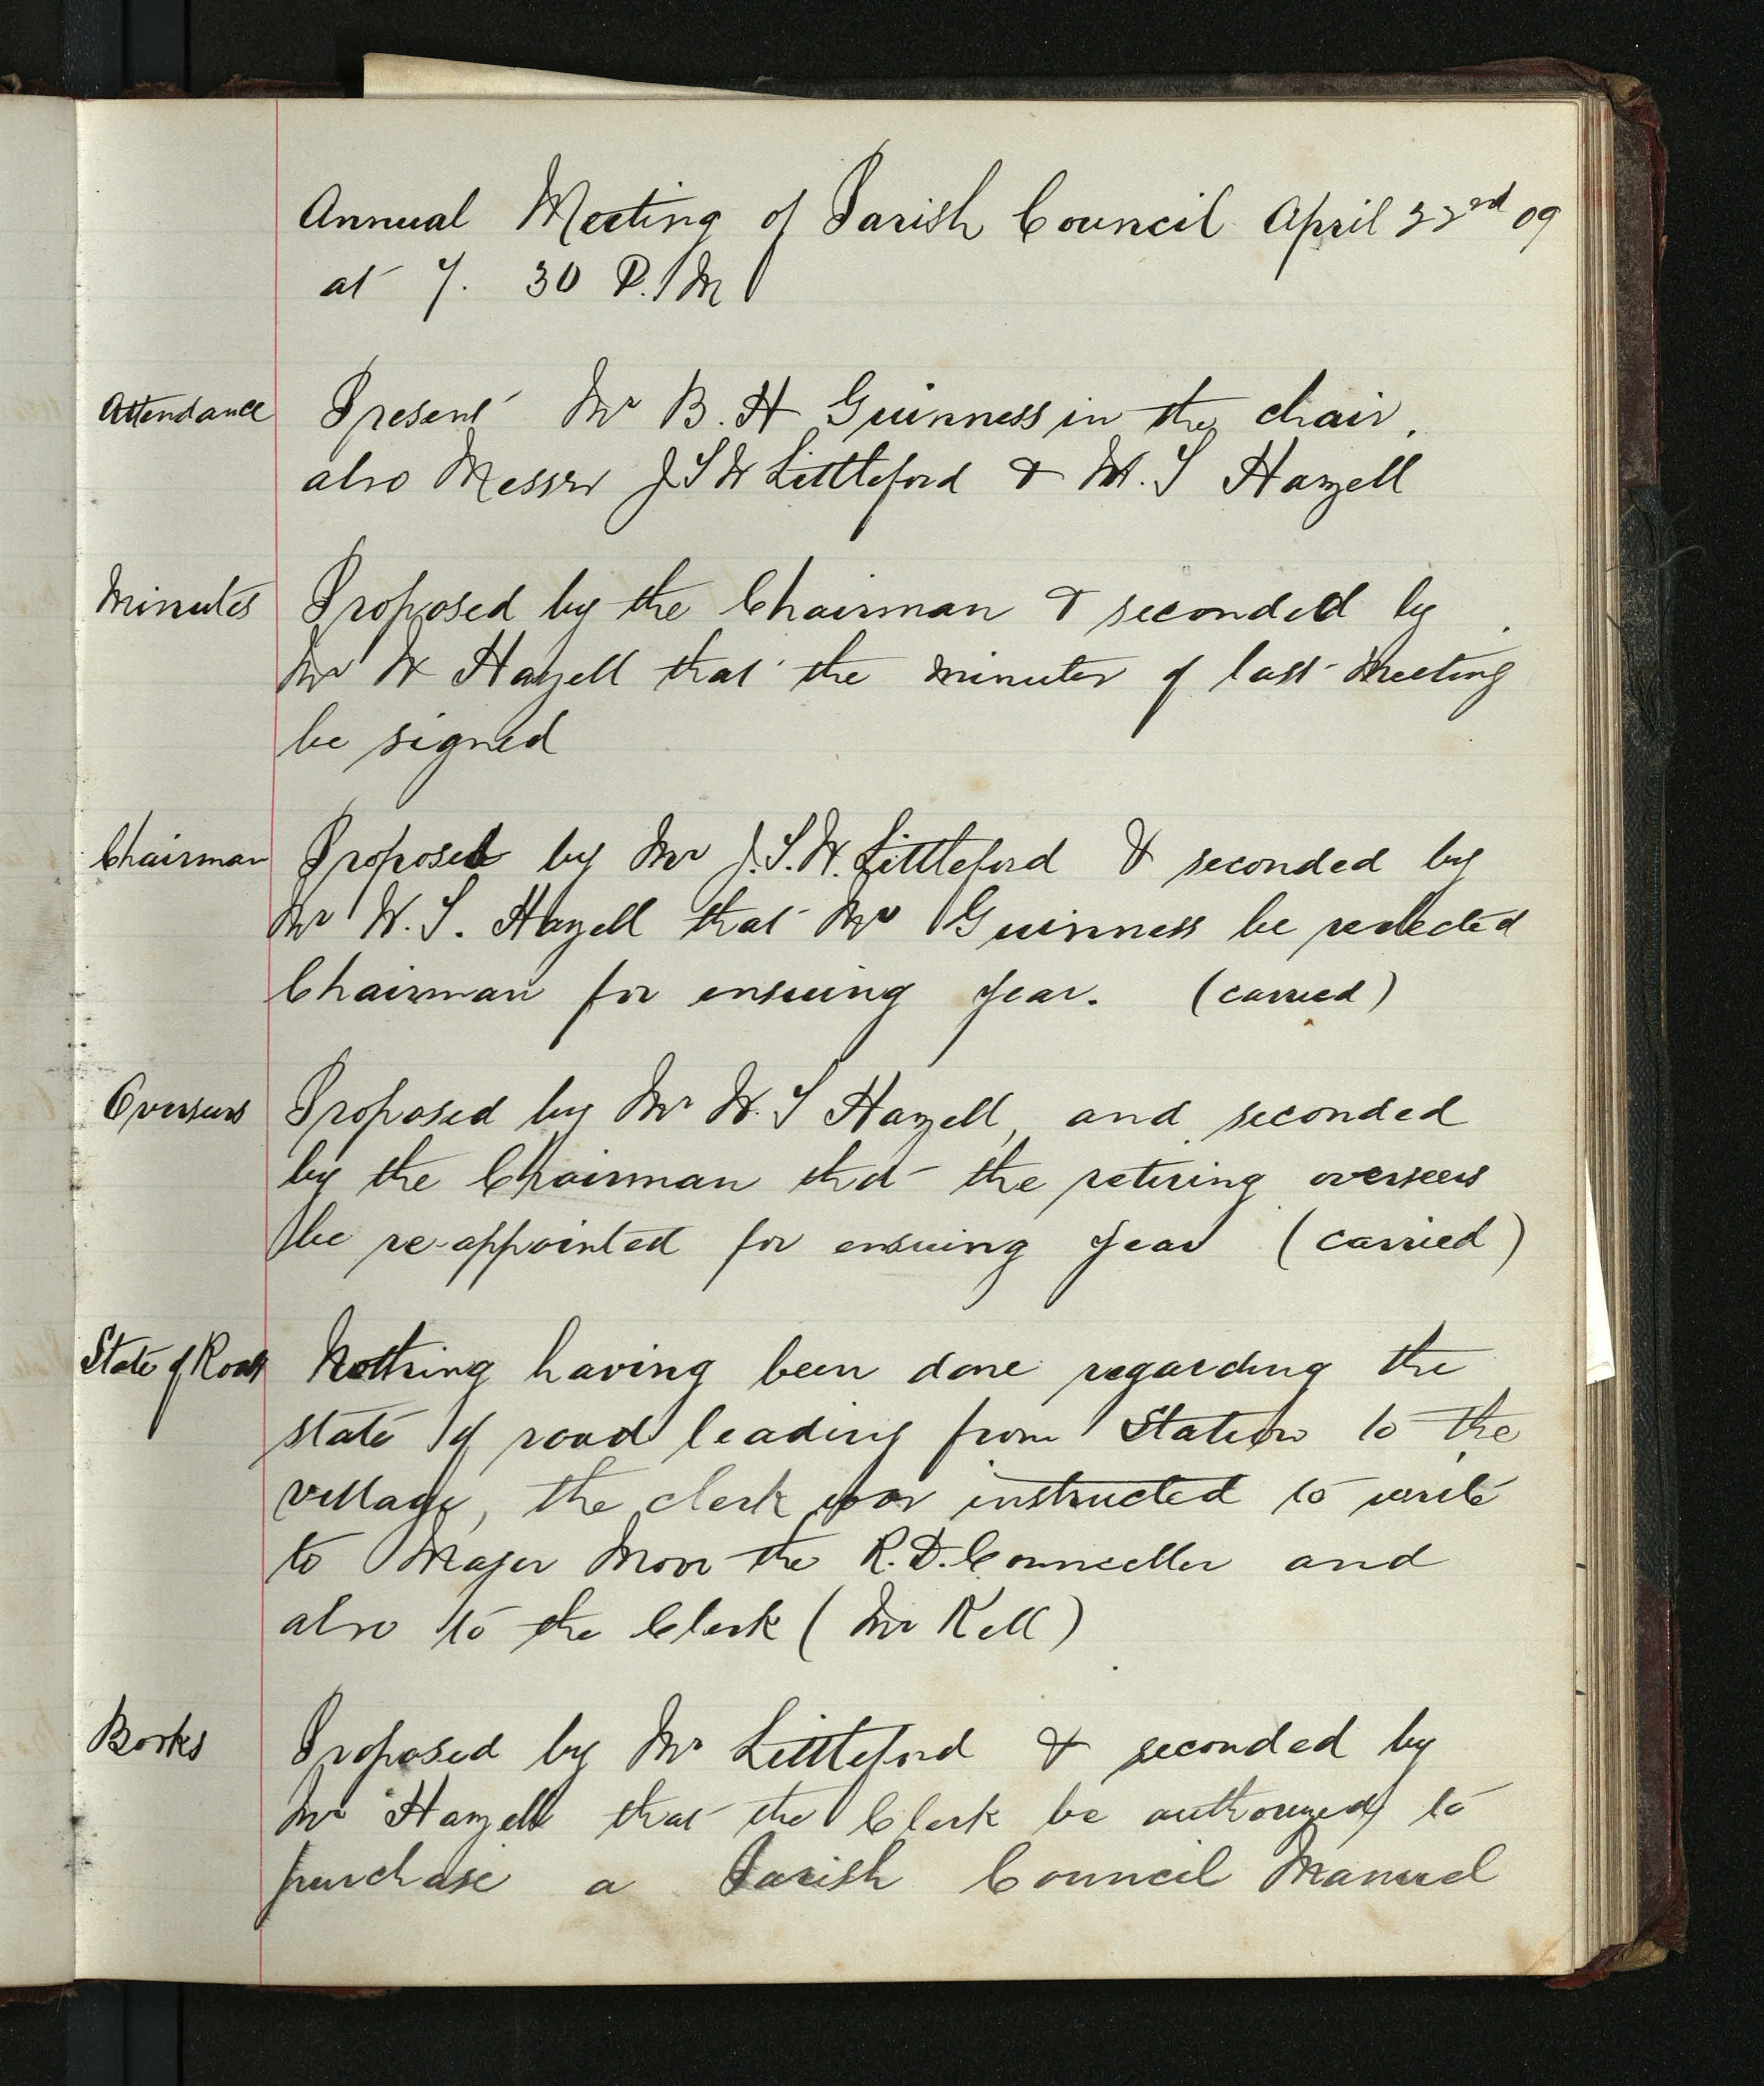 Annual Meeting of Parish Council April 22nd 09
at 7. 30 P.M
Attendance Present Mr B. H Guinness in the chair,
also Messrs J S W Littleford & W. S Hazell
Minutes Proposed by the Chairman & seconded by
Mr W Hazell that the minutes of last Meeting
be signed
Chairman Proposed by Mr J. S. W. Littleford & seconded by
Mr W. S. Hazell that Mr Guinness be reelected
Chairman for ensuing year. (carried)
Overseers Proposed by Mr W. S Hazell, and seconded
by the Chairman that the retiring overseers
be re-appointed for ensuing year (carried)
State of Road Nothing having been done regarding the
state of road leading from Station to the
village, the clerk was instructed to write
to Major Moor the R. D. Councellor and
also to the Clerk (Mr Kell)
Books Proposed by Mr Littleford & seconded by
Mr Hazell that the Clerk be authorized to
purchase a Parish Council Manuel